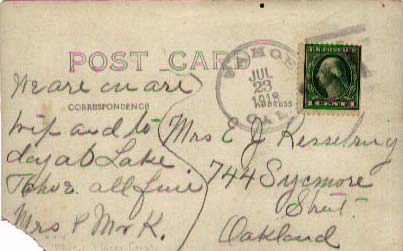 POST CARD
CORRESPONDENCE
We are on are
trip and to
day at Lake
Tahoe all fine
Mrs P Mr K.
JUL
23
CAL.
ADDRESS
U.S. POSTAGE
1 CENT 1
Mrs E J
744 Sycmore
Street
Oakland